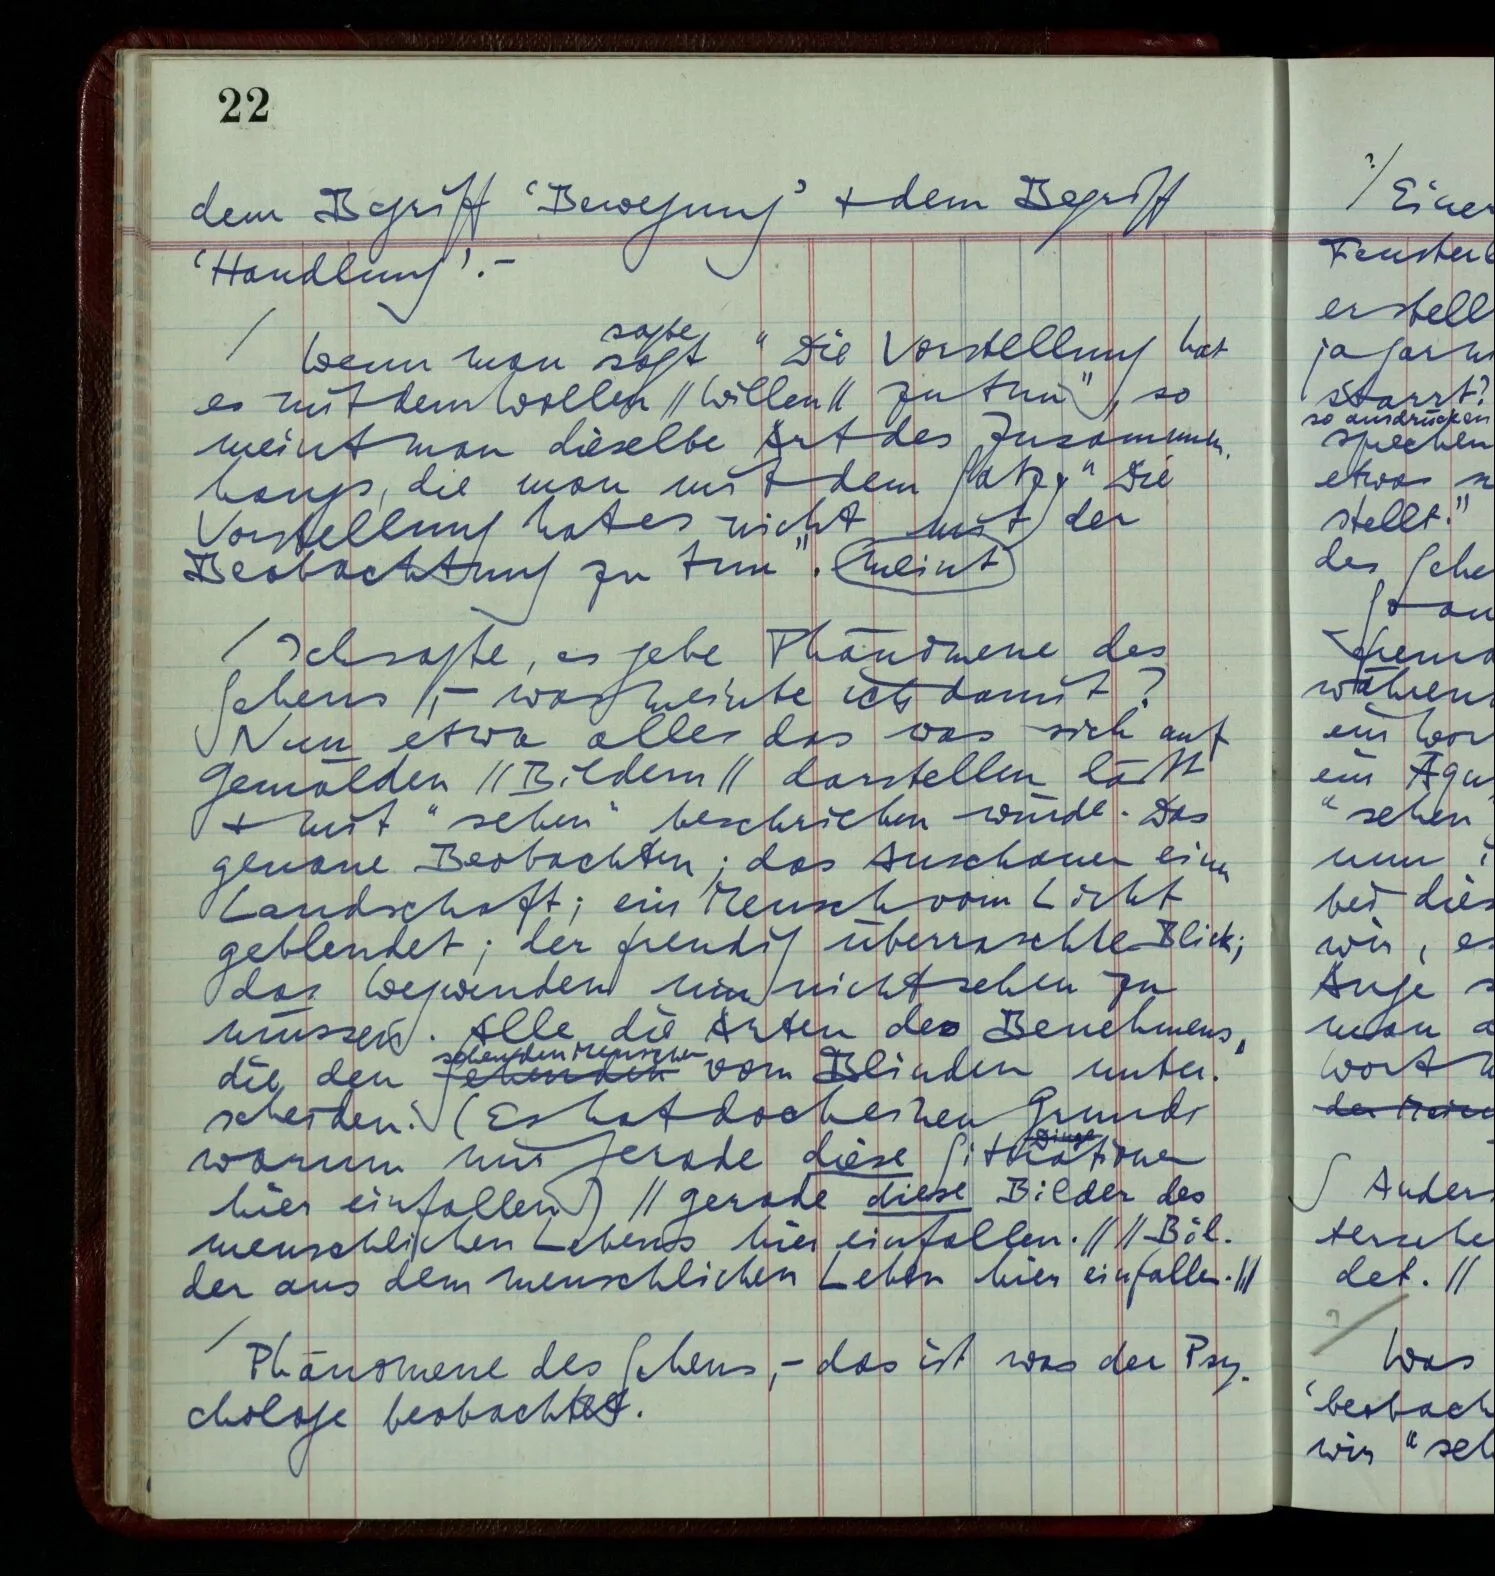 22
dem Begriff ‘Bewegung’ + dem Begriff
‘Handlung’. –
/ Wenn man sagt
sagte
“Die Vorstellung hat
es mit dem Wollen // Willen // zu tun”, so
meint man dieselbe Art des Zusammen-
hangs, die man mit dem Satz “Die
Vorstellung hat es nicht mit der
Beobachtung zu tun”. meint
/ Ich sagte, es gebe Phänomene des
Sehens, – was meinte ich damit?
Nun etwa alles das was sich auf
Gemälden // Bildern // darstellen läßt
+ mit “sehen” beschrieben würde. Das
genaue Beobachten; das Anschauen einer
Landschaft; ein Mensch vom Licht
geblendet; der freudig überraschte Blick;
das Wegwenden um nicht sehen zu
müssen. Alle die Arten des Benehmens,
sehenden Menschen
die den Sehenden vom Blinden unter-
scheiden. (Es hat doch einen Grund,
Dinge
warum mir gerade diese Situationen
hier einfallen) // gerade diese Bilder des
menschlichen Lebens hier einfallen. // // Bil-
der aus dem menschlichen Leben hier einfallen. //
/ Phänomene des Sehens, – das ist was der Psy-
chologe beobachtet.
?/ Einer
Fensterl
erstell
ja gar n
starrt?
so ausdrücken
sprechen
etwas
stellt.”
des Sehe
fremd
während
ein Wor
ein Äqu
“sehen
nun
bei dies
wir, es
Auge s
man a
Wort
der
∫ Anders
tersche
det. //
?/ Was
‘beobach
wir “seh